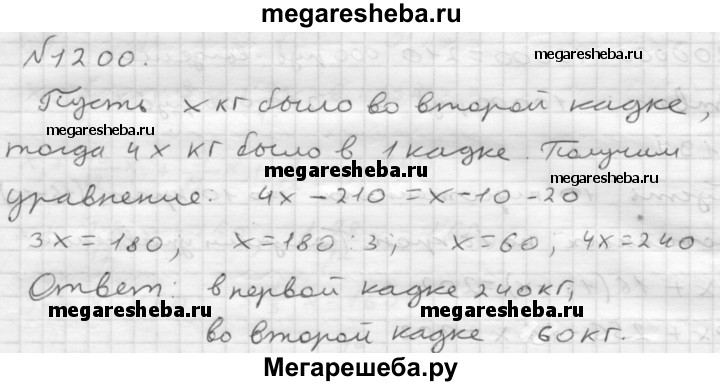 megaresheba.ru
N1200.
megaresheba.ru
Пусть x кг было во второй кадке,
megaresheba.ru
тогда 4x кг было в 1 кадке. Получим
megaresheba.ru
уравнение: 4x - 210 = x - 10 - 20
3x = 180; x = 180 : 3; x = 60; 4x = 240
Ответ: в первой кадке 240 кг,
megaresheba.ru megaresheba.ru
во второй кадке 60 кг.
Мегарешеба.ру